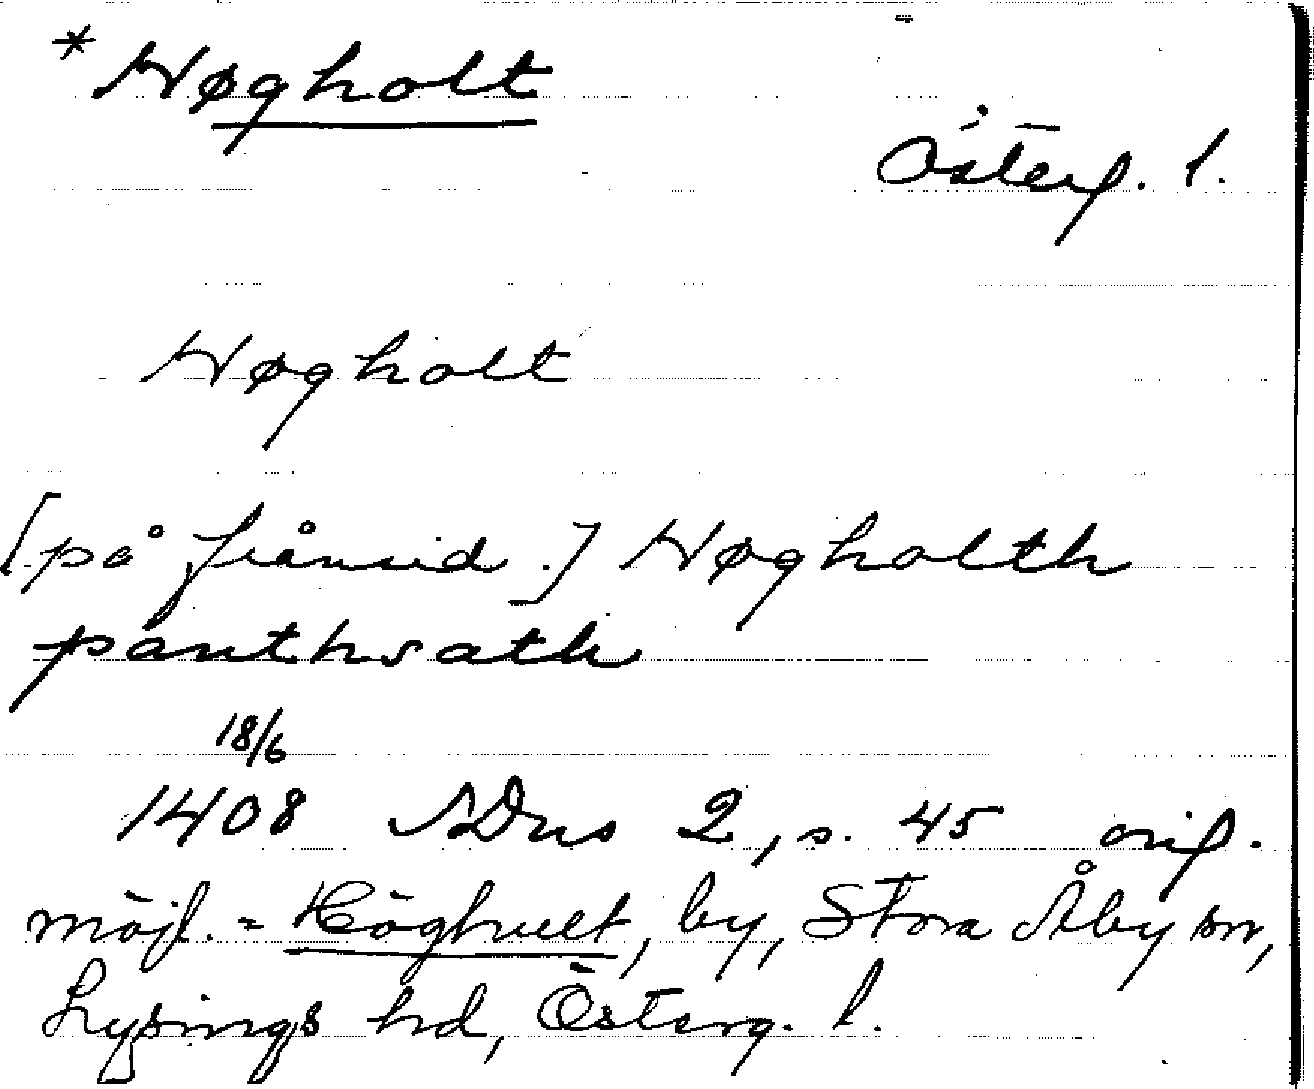 *Høgholt
Österg. l.
Høgholt
[på frånsid.] Høgholth
panthsath
18/6
1408 SDns 2, s. 45 orig.
möjl. = Höghult, by, Stora Åby sn,
Lysings hd, Österg. l.